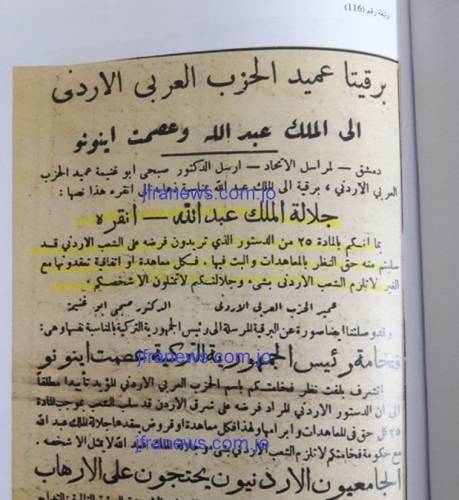 وثيقة رقم (116)
برقيتا عميد الحزب العربي الاردني
الى الملك عبد الله وعصمت اينونو
دمشق — لمراسل الاتحاد — ارسل الدكتور صبحي ابو غنيمة عميد الحزب
العربي الاردني ، برقية الى الملك عبد الله بمناسبة ذهابه الى انقره هذا نصها :
jfranews.com.jo
جلالة الملك عبد الله — انقره
بما انكم بالمادة ٢٥ من الدستور الذي تريدون فرضه على الشعب الاردني قد
سلبتم منه حق النظر بالمعاهدات والبت فيها . فكل معاهدة او اتفاقية تعقدونها مع
الغير لا تلزم الشعب الاردني بشيء وجلالتكم لا تمثلون الا شخصكم .
عميد الحزب العربي الاردني — الدكتور صبحي ابو غنيمة
وقد وصلتنا ايضا صورة عن البرقية المرسلة الى رئيس الجمهورية التركية بالمناسبة نفسها وهي :
فخامة رئيس الجمهورية التركية عصمت اينونو
jfranews.com.jo
اتشرف بلفت نظر فخامتكم باسم الحزب العربي الاردني المؤيد تأييدا مطلقا
الى ان الدستور الاردني المراد فرضه على شرق الاردن قد سلب الشعب بموجب المادة
٢٥ كل حق في المعاهدات وابرامها ولهذا فكل معاهدة او قروض يعقدها جلالة الملك عبد الله
مع حكومة فخامتكم لا تلزم الشعب الاردني بشيء وجلالة الملك عبد الله لا يمثل الا شخصه .
jfranews.com.jo
الجامعيون الاردنيون يحتجون على الارهاب